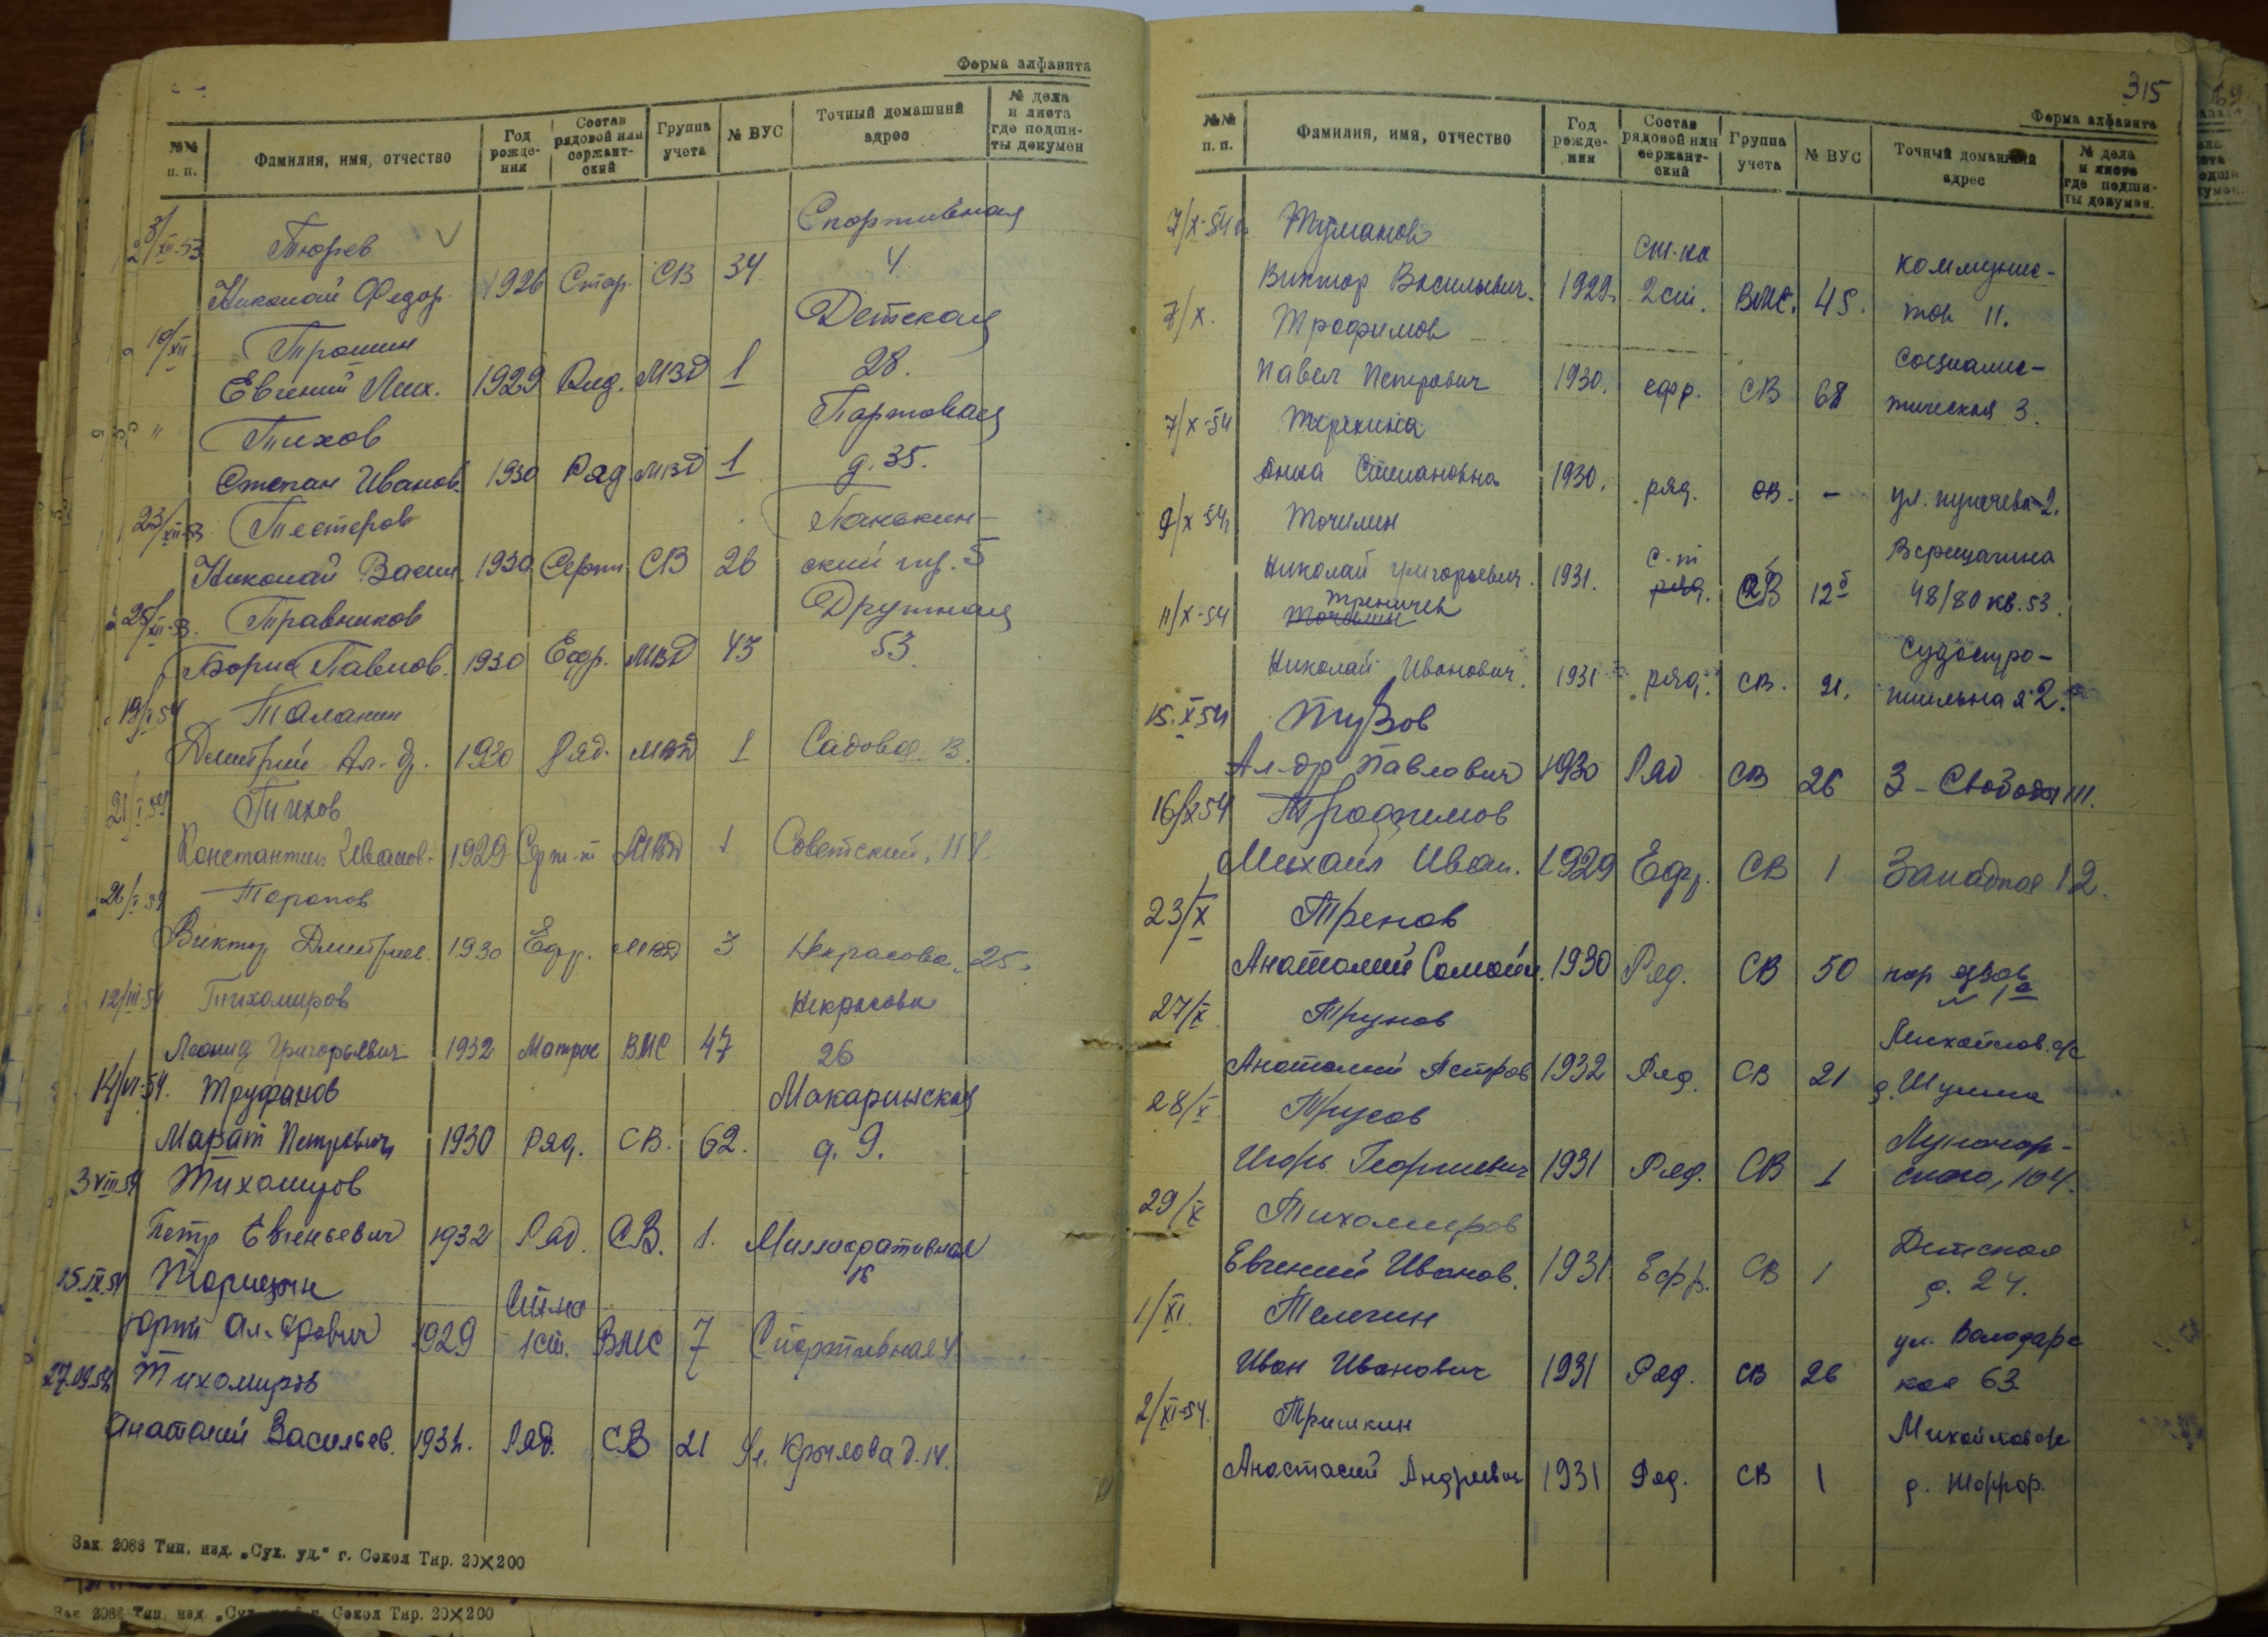 Форма алфавита
№№ п. п.
Фамилия, имя, отчество
Год рожде-ния
Состав рядовой или сержант-ский
Группа учета
№ ВУС
Точный домашний адрес
№ дела и листа где подши-ты докумен
Спортивная
XII-53 Тюрев
Николай Федор. 1926 Стар. СВ 34 4.
Детская
19/XII Трошин
Евгений Мих. 1929 Ряд. МВД 1 28.
Портовая
" Тихов
Степан Иванов. 1930 Ряд МВД 1 д. 35.
23/XII-53 Тестеров
Панькин-
Николай Васил 1930 Серж СВ 26 ский пер. 5
25/XII-53. Травников
Дружная
Борис Павлов. 1930 Ефр. МВД 43 53
19/I 54 Таланин
Дмитрий Ал-др. 1930 Ряд. МВД 1 Садовая 13.
21/I.54 Тичков
Константин Иванов. 1929 Серж-т МВД 1 Советский, 114.
26/I 54 Торопов
Виктор Дмитриев. 1930 Ефр. МВД 3 Некрасова, 25.
12/III-54 Тихомиров Некрасова
Леонид Григорьевич 1932 Матрос ВМС 47 26
14/VI-54. Труфанов Макарьинская
Марат Петрович 1930 ряд. СВ. 62. д. 9.
3 VIII 54 Тихомиров
Петр Евгеньевич 1932 Ряд. СВ. 1. Миллиоративная
16
15.IX.54 Торицын
Юрий Ал-дрович 1929 1 ст. ВМС 7 Спортивная 4
27.09.54 Тихомиров
Анатолий Васильев. 1932. Ряд. СВ 21 Ул. Крылова д. 14.
Зак. 2086 Тип. изд. „Сух. уд.“ г. Сокол Тир. 20×200
Зак 2086 Тип. изд. „Сух. г. Сокол Тир. 20×200
315
Форма алфавита
№№ п. п.
Фамилия, имя, отчество
Год рожде-ния
Состав рядовой или сержант-ский
Группа учета
№ ВУС
Точный домашний адрес
№ дела и листа где подши-ты докумен.
7/X-54 г. Туманов
ст-на коммунис-
Виктор Васильевич. 1929. 2 ст. ВМС. 45. тов 11.
7/X. Трофимов
социалис-
Павел Петрович 1930. ефр. СВ 68 тическая 3.
7/X-54 Терехина
Анна Степановна 1930. ряд. СВ. – ул. пугачева-2.
9/X 54г Точилин
с-т Верещагина
Николай Григорьевич. 1931. ряд. СВ 12 48/80 кв. 53.
11/X-54 Точилин Треничев
Судострo-
Николай Иванович. 1931 ряд. СВ. 21. ительная 2.
15.X 54 Тузов
Ал-др Павлович 1930 Ряд СВ 26 3 - Свободы 111.
16/X 54 Трофимов
Михаил Иван. 1929 Ефр. СВ 1 Западная 12.
23/X Тренов
Анатолий Самойл. 1930 Ряд. СВ 50
27/X Трунов
Михайлов. с/с
Анатолий Петров 1932 Ряд. СВ 21 д. Шупша
28/X Трусов
Луначар-
Игорь Георгиевич 1931 Ряд. СВ 1 ского, 104.
29/X Тихомиров
Детская
Евгений Иванов. 1931 Ефр. СВ 1 д. 24.
1/XI. Телегин
ул. Володарс
Иван Иванович 1931 Ряд. СВ 26 кая 63
2/XI-54. Тришкин
Михайлов с/с
Анастасий Андреевич 1931 Ряд. СВ 1